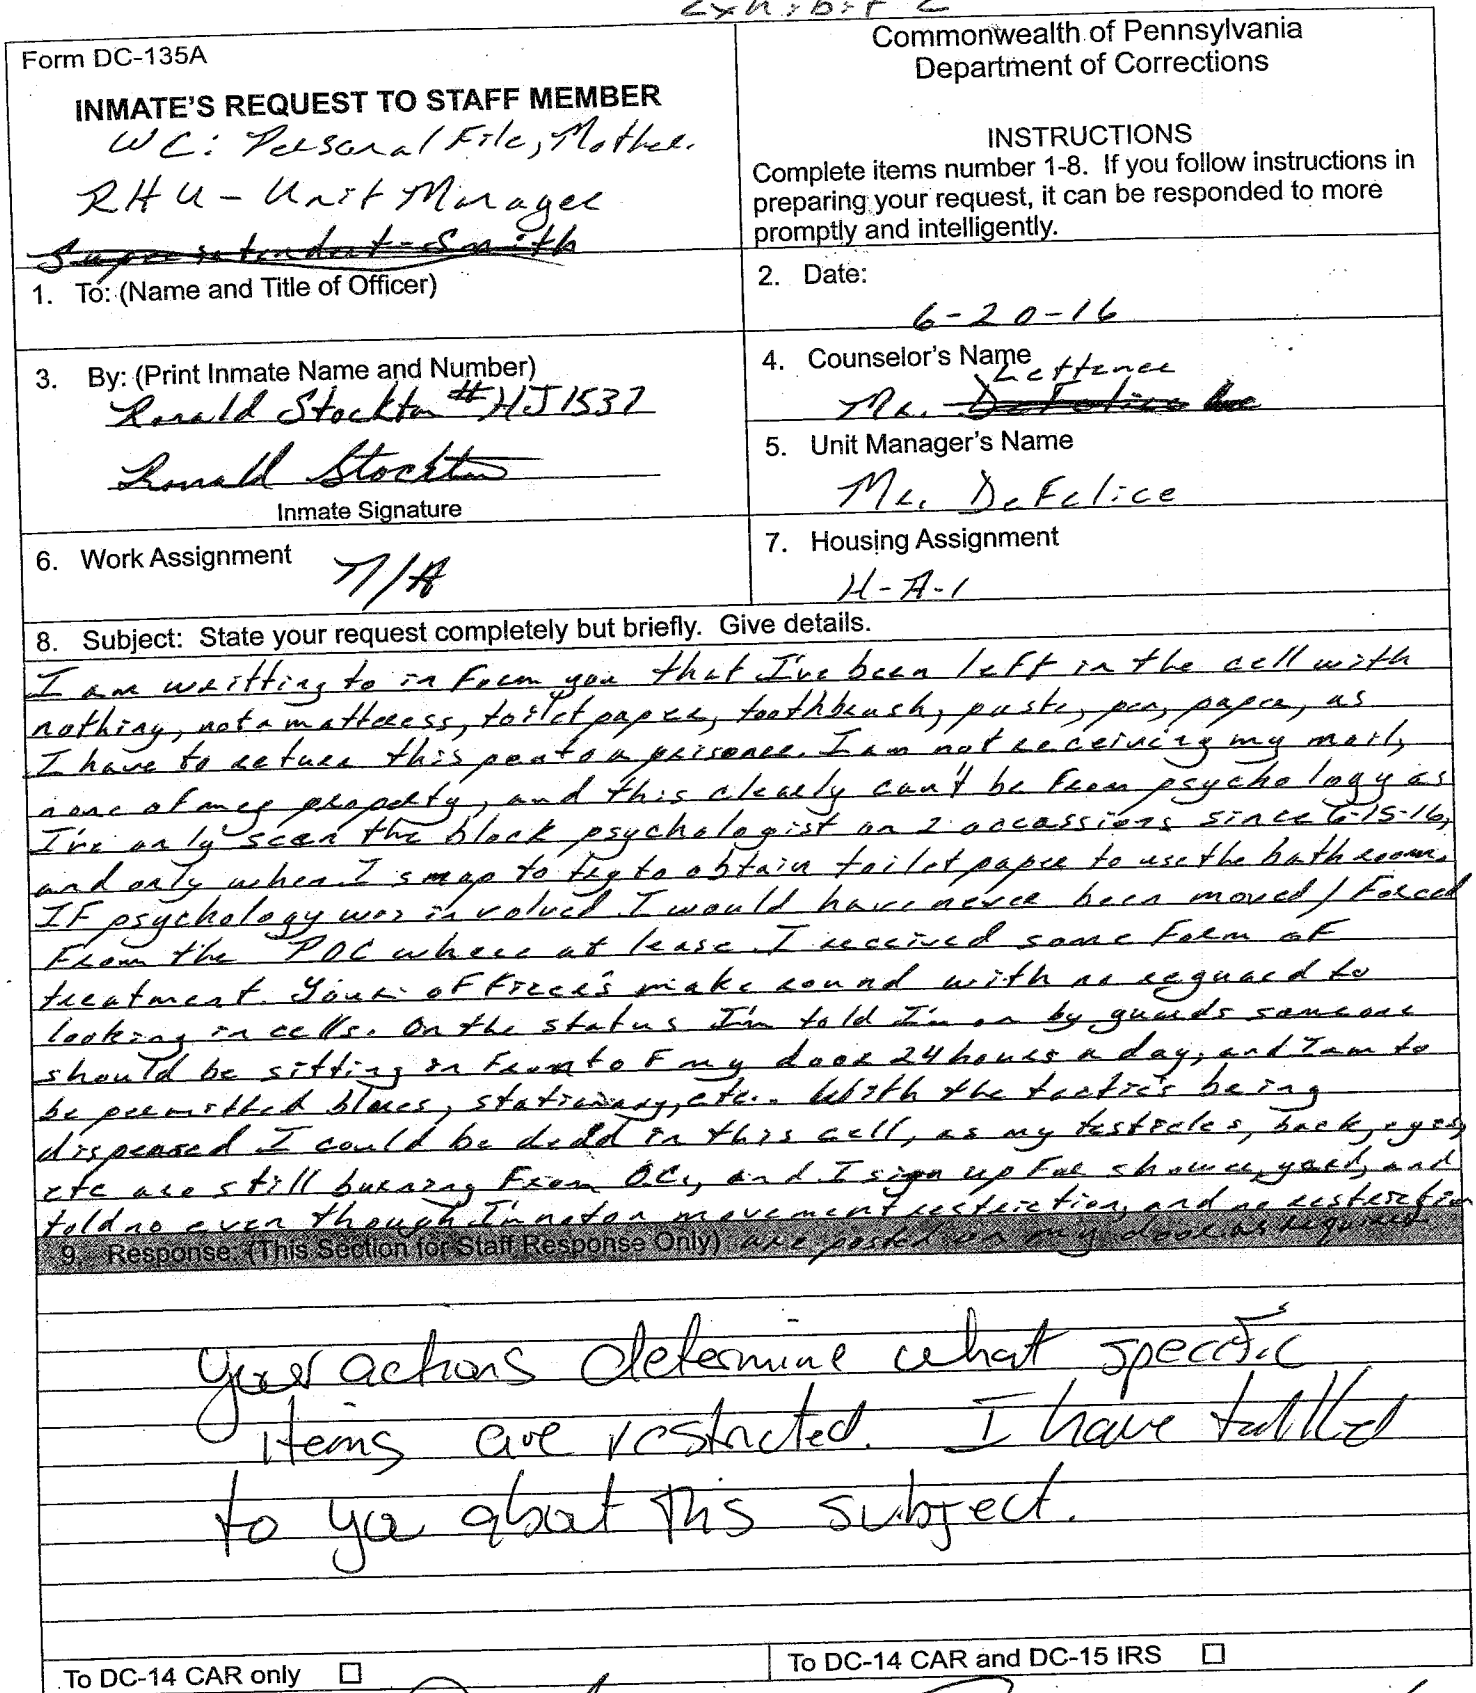 Exhibit C
Form DC-135A
INMATE'S REQUEST TO STAFF MEMBER
WC: Personal File, Mother.
RHU - Unit Manager
Superintendent-Smith
1. To: (Name and Title of Officer)
Commonwealth of Pennsylvania
Department of Corrections
INSTRUCTIONS
Complete items number 1-8. If you follow instructions in
preparing your request, it can be responded to more
promptly and intelligently.
2. Date:
6-20-16
3. By: (Print Inmate Name and Number)
Ronald Stockton #HJ1537
Ronald Stockton
Inmate Signature
4. Counselor's Name
Mr. DeFelice
5. Unit Manager's Name
Mr. DeFelice
6. Work Assignment
N/A
7. Housing Assignment
H-A-1
8. Subject: State your request completely but briefly. Give details.
I am writting to inform you that I've been left in the cell with
nothing, not a mattress, toilet paper, toothbrush, paste, pen, paper, as
I have to return this pen to a prisoner. I am not receiving my mail,
none of my property, and this clearly can't be from psychology as
I've only seen the block psychologist on 2 occassions since 6-15-16,
and only when I snap to try to obtain toilet paper to use the bathroom.
If psychology was involved I would have never been moved/forced
from the POC where at lease I received some form of
treatment. Your officer's make round with no reguard to
looking in cells. On the status I'm told I'm on by guards someone
should be sitting in front of my door 24 hours a day, and I am to
be permitted blues, stationary, etc.. With the tactics being
dispensed I could be dead in this cell, as my testicles, back, eyes,
etc are still burning from O.C., and I sign up for shower, yard, and
told no even though I'm not on movement restriction, and no restriction
are posted on my door as required
9. Response: (This Section for Staff Response Only)
Your actions determine what specific
items are restricted. I have talked
to you about this subject.
To DC-14 CAR only
To DC-14 CAR and DC-15 IRS